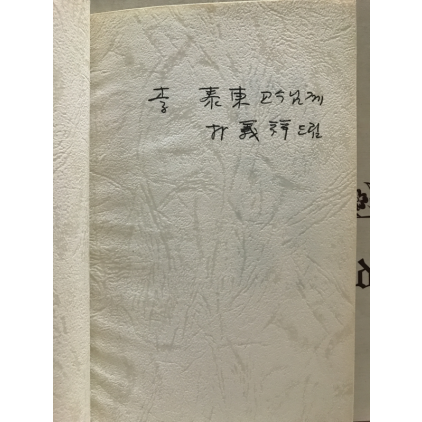 李 泰東 교수님께
朴義祥 드림